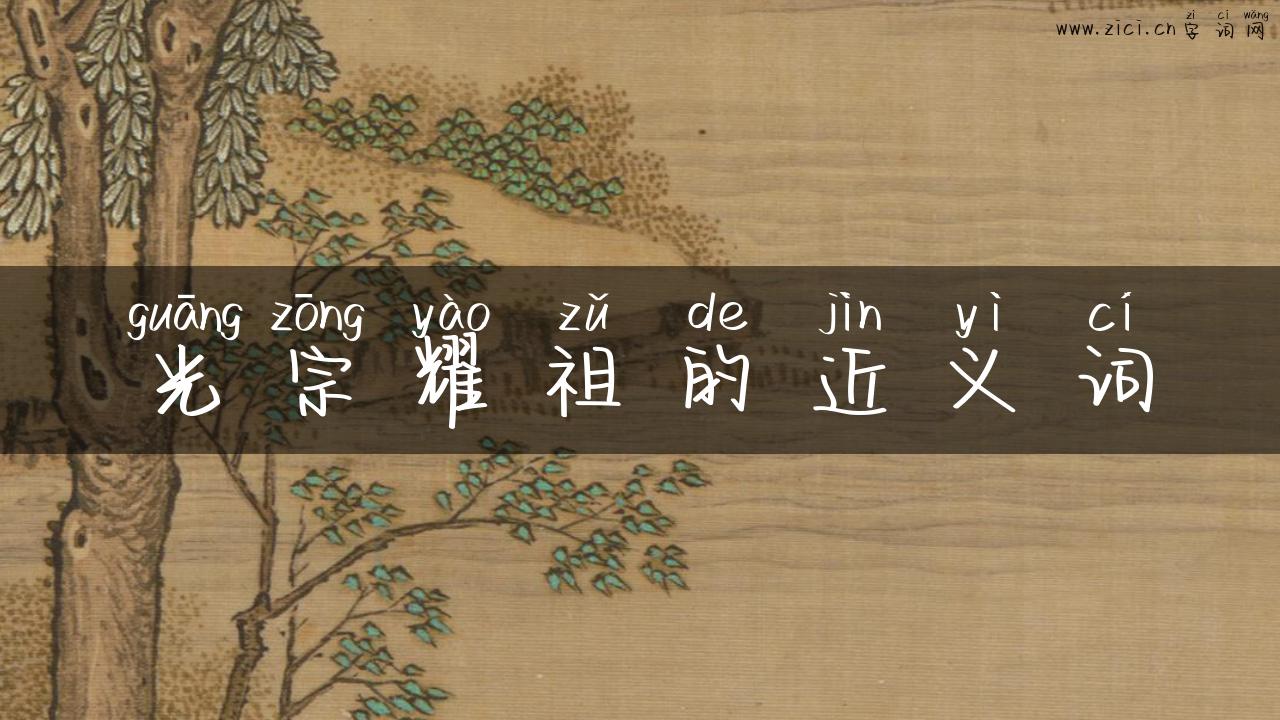 zì cí wǎng
www.zici.cn 字词网
guāng zōng yào zǔ de jìn yì cí
光宗耀祖的近义词